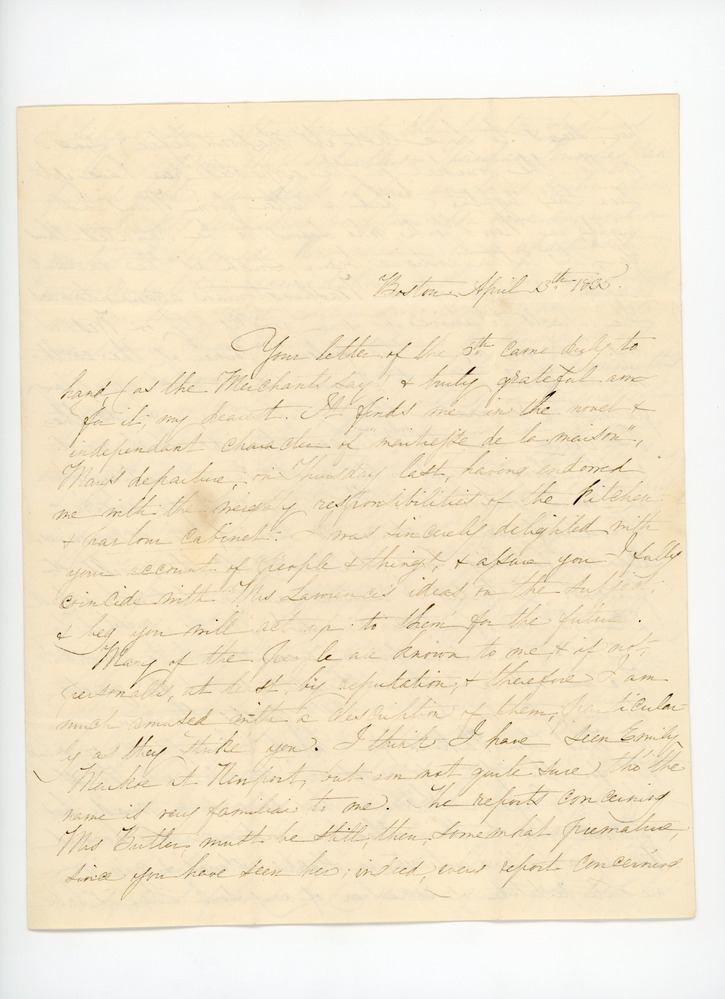 Boston April 3th 1835.
Your letter, of the 5th came duly to
hand, (as the Merchants say) & truly grateful am
I for it, my dearest. It finds me in the novel &
independant character of "maitresse de la maison",
Mary's departure, on Thursday last, having endowed
me with the weighty responsibilities of the kitchen
& parlour cabinet. I was sincerely delighted with
your account of people & things, & assure you I fully
coincide with Mrs Lawrence's ideas on the subject,
& beg you will act up to them for the future.
Many of the people are known to me & if not
personally, at least, by reputation, & therefore I am
much amused with a description of them, particular-
ly as they strike you. I think I have seen Emily
at Newport, but am not quite sure tho' the
name is very familiar to me. The reports concerning
Mrs Butler must be still, then, somewhat premature,
since you have seen her; indeed, every report concerning